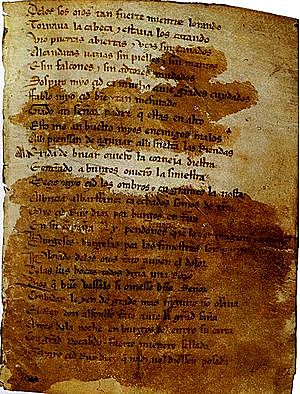 Delos sos oios tan fuerte mientre lorando
Tornaua la cabeça e estaua los catando
Vio puertas abiertas e vços sin cañados
Alcandaras uazias sin pielles e sin mantos
E sin falcones e sin adtores mudados
Sospiro myo çid ca mucho auie grandes cuydados
Fablo myo çid bien e tan mesurado
Grado ati señor padre que estas en alto
Esto me an buelto myos enemigos malos
Alli pienssan de aguijar alli sueltan las Riendas
Ala exida de biuar ouieron la corneia diestra
Entrando a burgos ouieron la siniestra
Meçio myo çid los ombros e engrameo la tiesta
Albricia albarffanez ca echados somos de tierra
Myo çid Ruy diaz por burgos entraua
En su conpaña pendones
Burgeses e burgesas por las finiestras son
Plorando delos oios tanto auyen el dolor
Delas sus bocas todos dizian una Razon
Dios que buen vassalo si ouiesse buen Señor
Conbidar le yen de grado mas ninguno non osaua
El Rey don alfonsso tanto auie la grand saña
Antes dela noche en burgos del entro su carta
Con grand Recabdo e fuerte mientre sellada
Que a myo çid Ruy diaz que nadi nol diessen posada